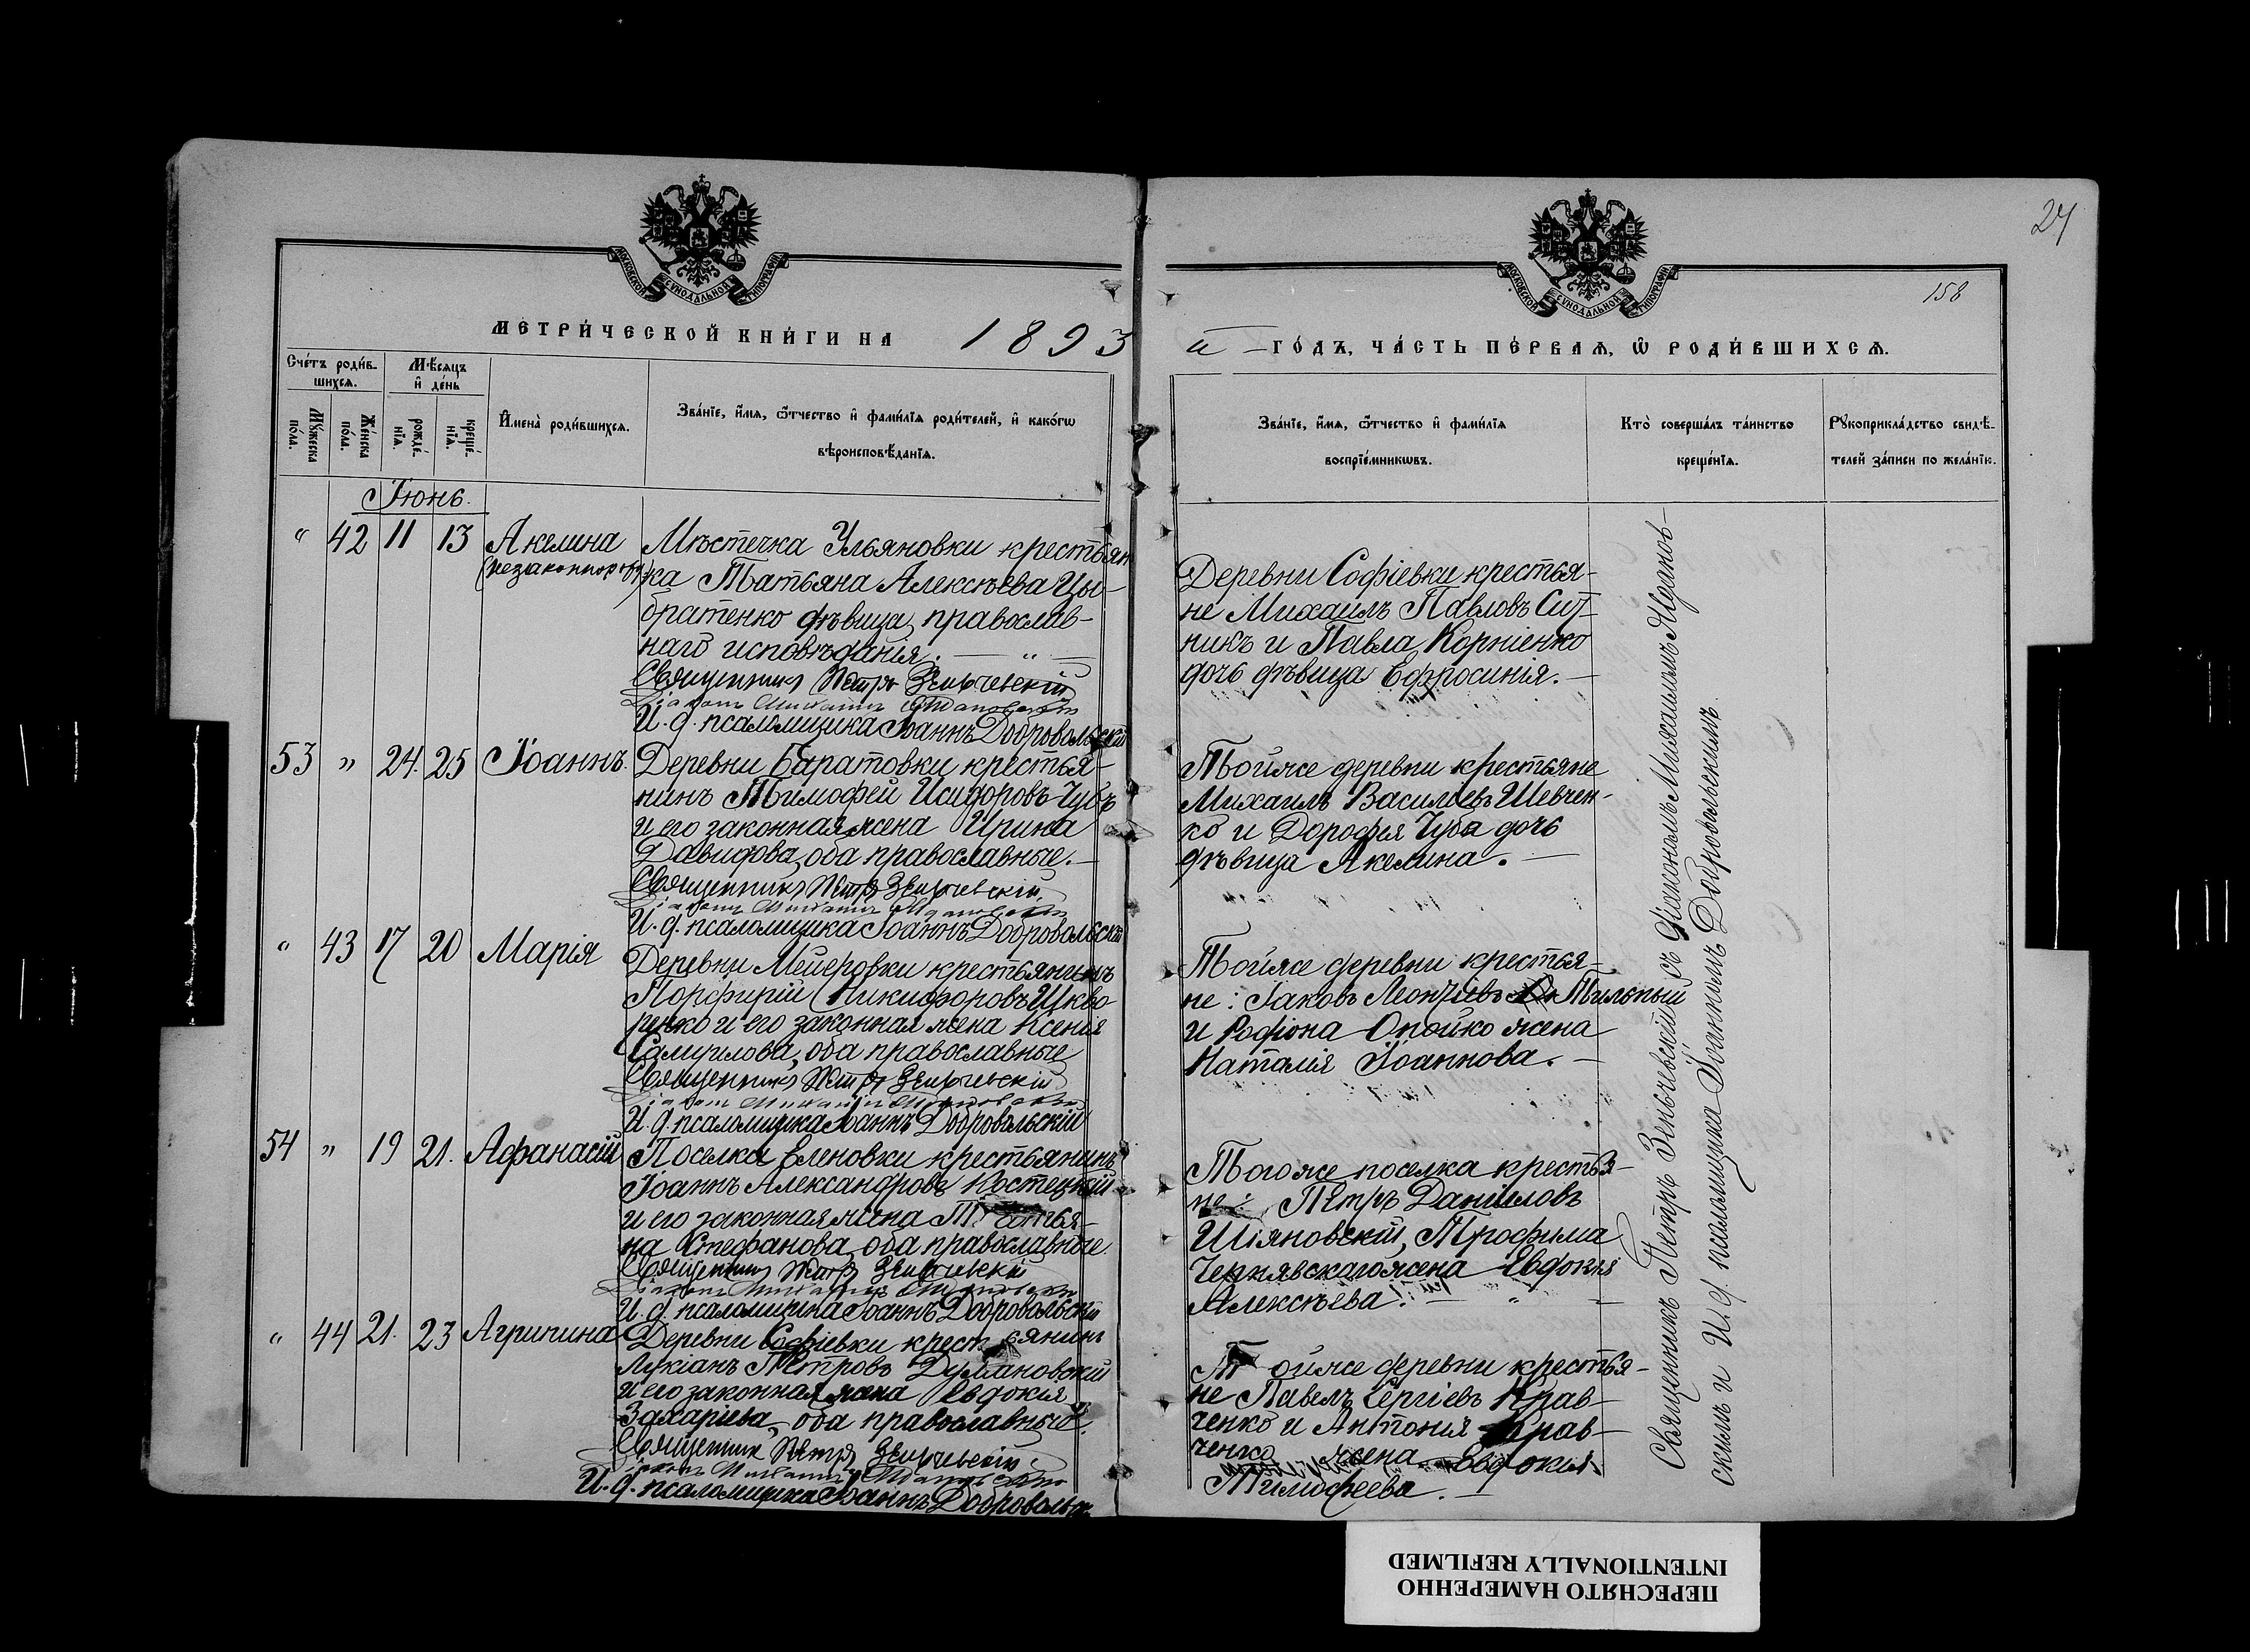 24
158
МОСКОВСКОЙ СѴНОДАЛЬНОЙ ТИПОГРАФІИ
МОСКОВСКОЙ СѴНОДАЛЬНОЙ ТИПОГРАФІИ
МЕТРИ́ЧЕСКОЙ КНИ́ГИ НА 1893
й — ГО́ДЪ, ЧА́СТЬ ПЕ́РВАѦ, Ѿ РОДИ́ВШИХСѦ.
Сче́тъ роди́в-
шихсѧ.
Мѣ́сѧцъ
и҆ де́нь
Мꙋ́жеска
по́ла.
Же́нска
по́ла.
рожде́-
нїѧ.
креще́-
нїѧ.
И҆мена̀ роди́вшихсѧ.
Зва́нїе, и҆́мѧ, ѻ҆́тчество и҆ фами́лїѧ роди́телей, и҆ како́гѡ
вѣроисповѣ́данїѧ.
Зва́нїе, и҆́мѧ, ѻ҆́тчество и҆ фами́лїѧ
воспрїе́мникѡвъ.
Кто̀ соверша́лъ та́инство
креще́нїѧ.
Рꙋкоприкла́дство свидѣ́-
телей за́писи по жела́нїю.
Іюнь.
" 42 11 13 Акелина
(незаконнор.)
Мѣстечка Ульяновки крестьян
ка Татьяна Алексѣева Цы-
братенко дѣвица, православ-
наго исповѣданія. — " —
Священникъ Петръ Зеньчевскій
Діаконъ Михаилъ Ждановскій
И. д. псаломщика Іоаннъ Добровольскій
Деревни Софіевки крестья-
не Михаилъ Павловъ Сит-
никъ и Павла Корніенко
дочь дѣвица Ефросинія. —
53 " 24. 25 Іоаннъ.
Деревни Баратовки крестья-
нинъ Тимофей Исидоровъ Чубъ
и его законная жена Ирина
Давидова, оба православные. —
Священникъ Петръ Зеньчевскій
Діаконъ Михаилъ Ждановскій
И. д. псаломщика Іоаннъ Добровольскій
Тойже деревни крестьяне
Михаилъ Васильевъ Шевчен-
ко и Дорофея Чуба дочь
дѣвица Акелина. —
" 43 17 20 Марія
Деревни Мейеровки крестьянинъ
Порфирій Никифоровъ Шкво
ренко и его законная жена Ксенія
Самуилова, оба православные
Священникъ Петръ Зеньчевскій
Діаконъ Михаилъ Ждановскій
И. д. псаломщика Іоаннъ Добровольскій
Тойже деревни крестья-
не: Іаковъ Леонтіевъ Тильный
и Родіона Опойко жена
Наталія Іоаннова. —
54 " 19 21. Афанасій
Поселка Еленовки крестьянинъ
Іоаннъ Александровъ Костецкій
и его законная жена Татья-
на Стефанова, оба православные.
Священникъ Петръ Зеньчевскій
Діаконъ Михаилъ Ждановскій
И. д. псаломщика Іоаннъ Добровольскій
Тогоже поселка крестья-
не: Петръ Даніиловъ
Шіяновскій, Трофима
Чернявскаго жена Евдокія
Алексѣева. — " —
" 44 21. 23 Агрипина
Деревни Софіевки крестьянинъ
Лукіанъ Петровъ Думановскій
и его законная жена Евдокія
Захаріева, оба православные.
Священникъ Петръ Зеньчевскій
Діаконъ Михаилъ Ждановскій
И. д. псаломщика Іоаннъ Добровольск.
Тойже деревни крестья-
не Павелъ Сергіевъ Крав-
ченко и Антонія Крав-
ченко жена Евдокія
Тимофеева. —
Священникъ Петръ Зеньчевскій съ діакономъ Михаиломъ Ждановс-
кимъ и И. д. псаломщика Іоанномъ Добровольскимъ.
ПЕРЕСНЯТО НАМЕРЕННО
INTENTIONALLY REFILMED